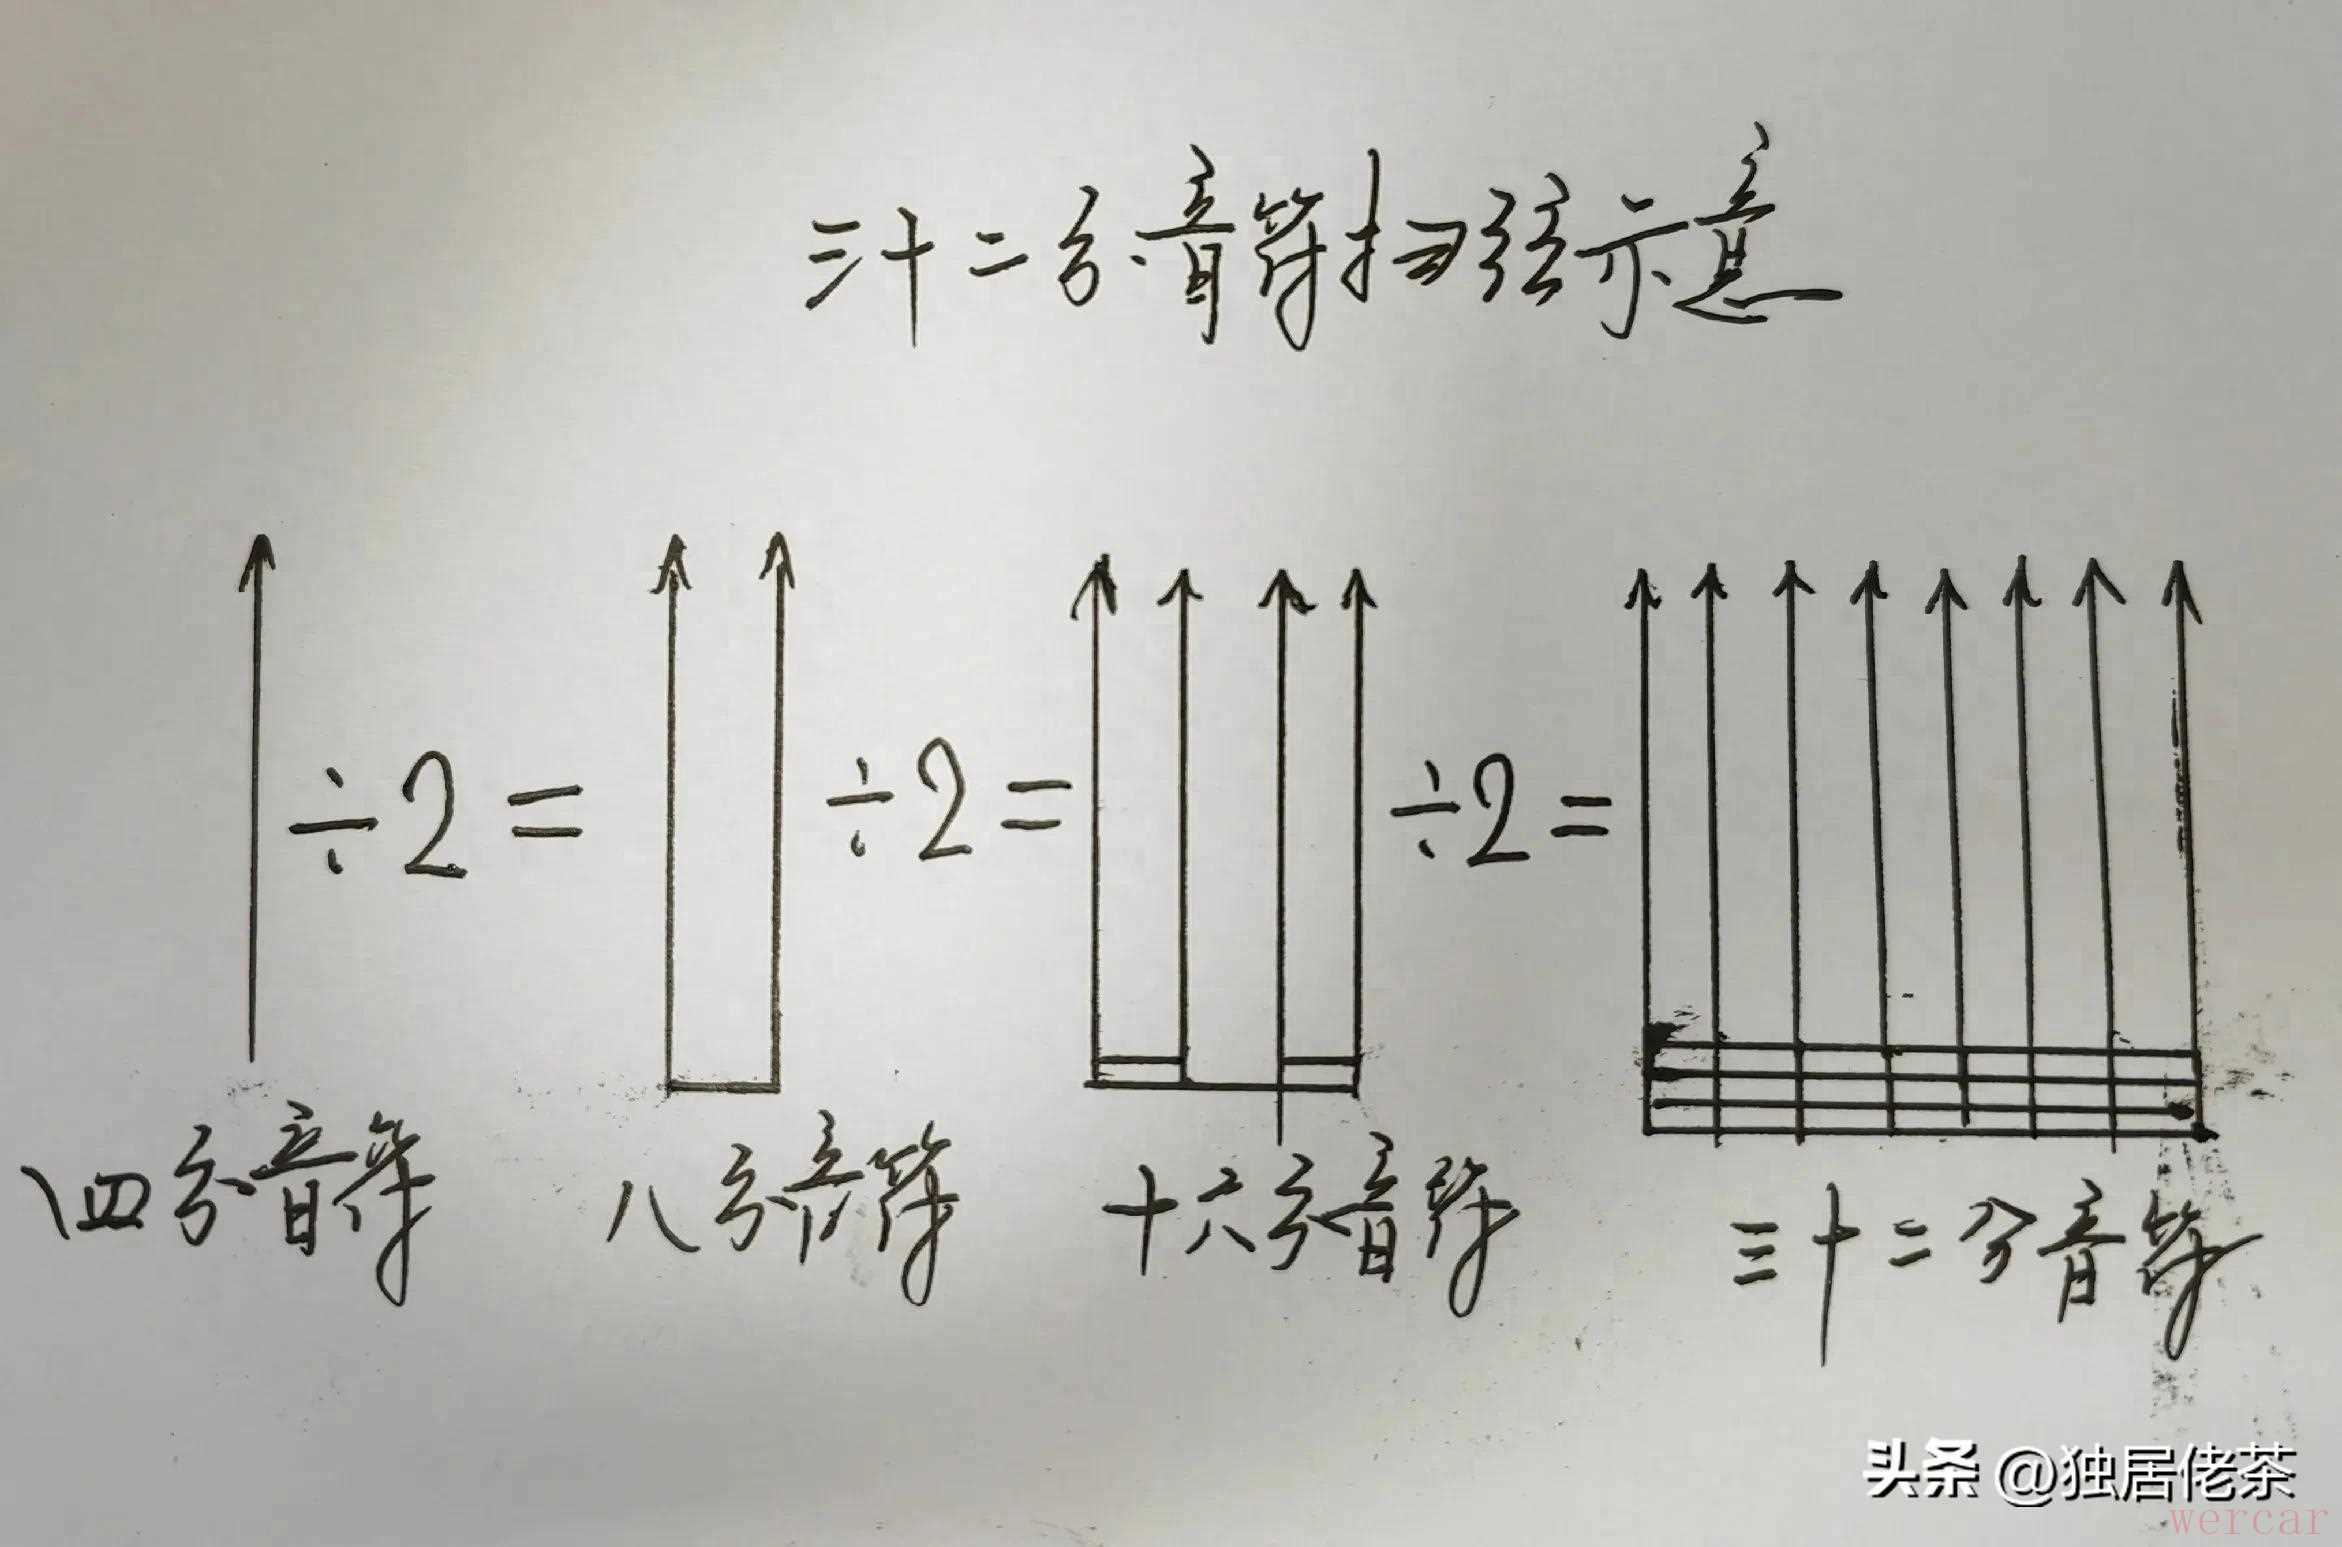 三十二分音符扫弦示意
÷2= ÷2= ÷2=
四分音符 八分音符 十六分音符 三十二分音符
头条 @独居佬茶
wercar